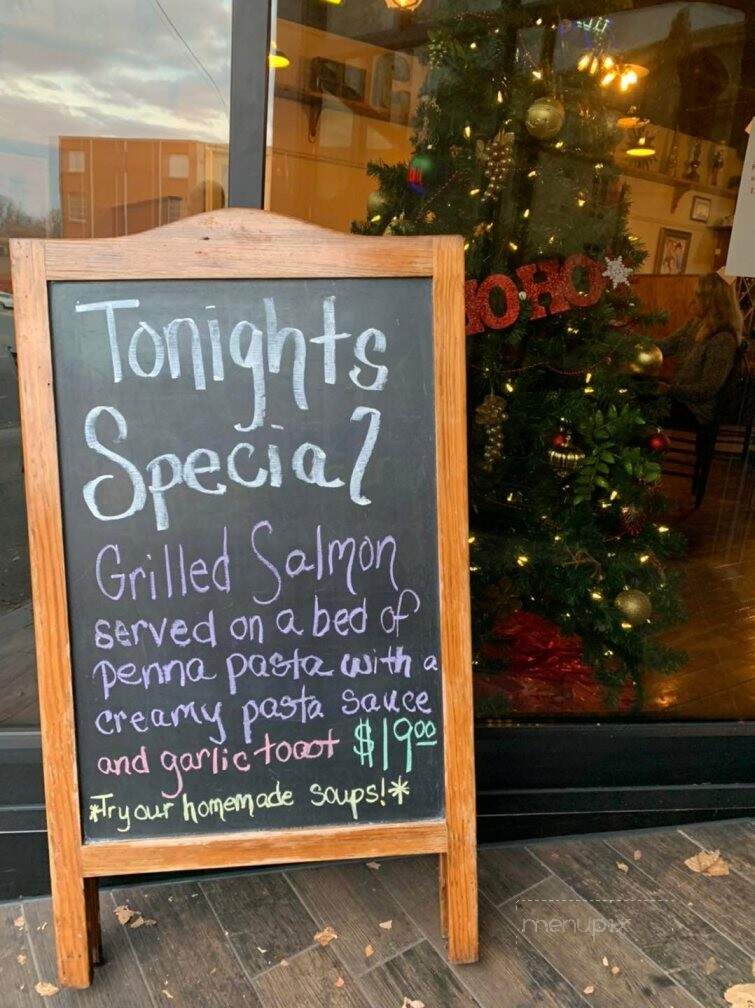 Tonights
Special
Grilled Salmon
served on a bed of
penna pasta with a
creamy pasta sauce
and garlic toast $19.00
*Try our homemade soups!*
HOHO
menupix